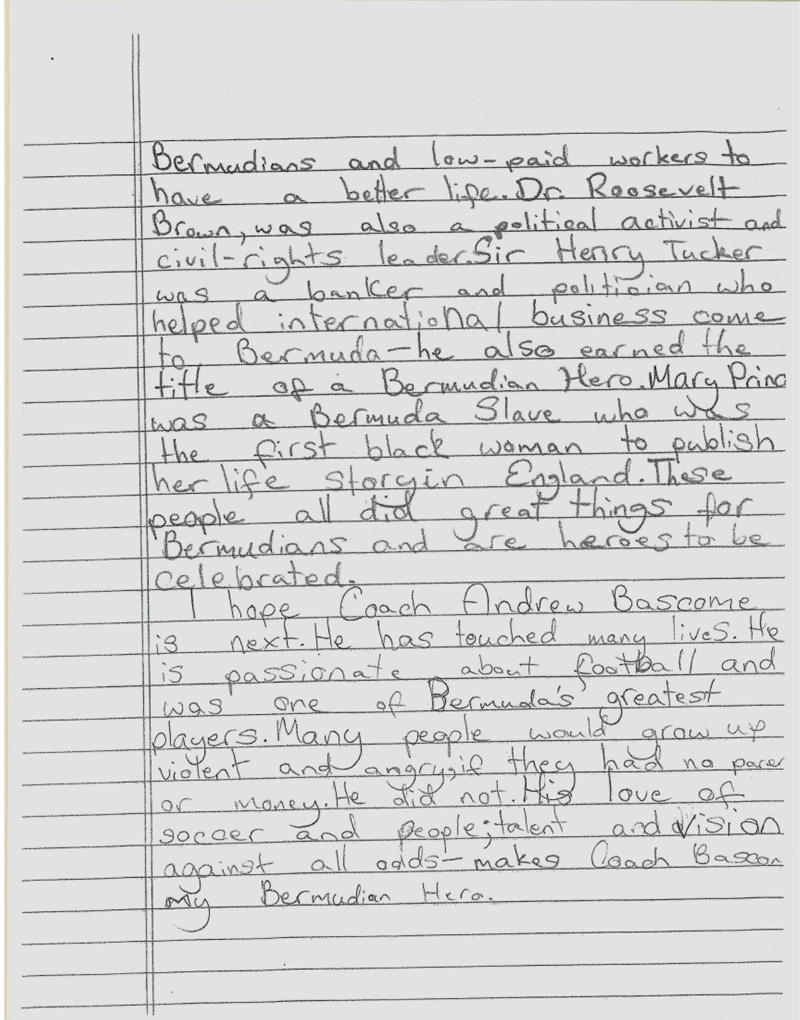 Bermudians and low-paid workers to
have a better life. Dr. Roosevelt
Brown, was also a political activist and
civil-rights leader. Sir Henry Tucker
was a banker and politician who
helped international business come
to Bermuda-he also earned the
title of a Bermudian Hero. Mary Princ
was a Bermuda Slave who was
the first black woman to publish
her life story in England. These
people all did great things for
Bermudians and are heroes to be
celebrated.
I hope Coach Andrew Bascome
is next. He has touched many lives. He
is passionate about football and
was one of Bermuda's greatest
players. Many people would grow up
violent and angry, if they had no
or money. He did not. His love of
soccer and people; talent and vision
against all odds-makes Coach Bascom
my Bermudian Hero.